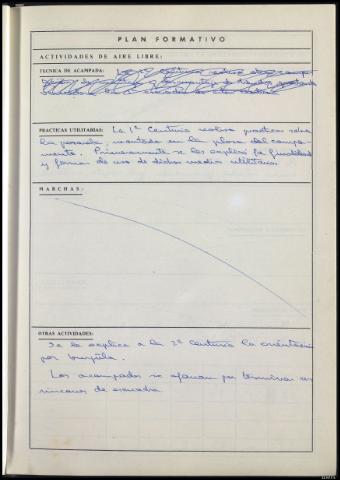 PLAN FORMATIVO
ACTIVIDADES DE AIRE LIBRE:
TECNICA DE ACAMPADA:
PRACTICAS UTILITARIAS: La 1ª Centuria realiza practicas sobre
la pasarela, montada en la plaza del campa-
mento. Primeramente se les explicó la finalidad
y forma de uso de dichos medios utilitarios.
MARCHAS:
OTRAS ACTIVIDADES:
Se le explica a la 2ª Centuria la orientación
por brújula.
Los acampados se afanan por terminar sus
rincones de escuadra.